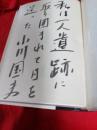 私は一人遺跡に
取り囲まれて日を
送った
小川国夫